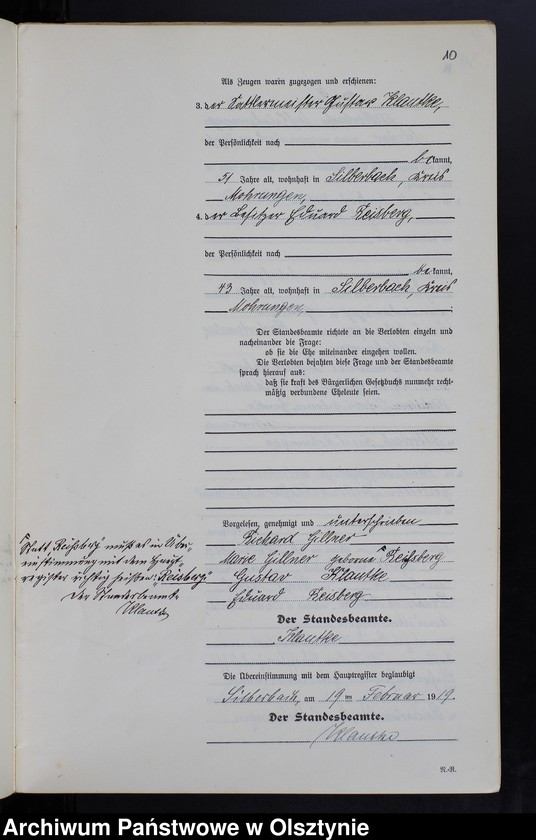 10
Als Zeugen waren zugezogen und erschienen:
3. der Sattlermeister Gustav Klautke,
der Persönlichkeit nach
bekannt,
51 Jahre alt, wohnhaft in Silberbach, Kreis
Mohrungen,
4. der Besitzer Eduard Reisberg,
der Persönlichkeit nach
bekannt,
43 Jahre alt, wohnhaft in Silberbach, Kreis
Mohrungen,
Der Standesbeamte richtete an die Verlobten einzeln und
nacheinander die Frage:
ob sie die Ehe miteinander eingehen wollen.
Die Verlobten bejahten diese Frage und der Standesbeamte
sprach hierauf aus:
daß sie kraft des Bürgerlichen Gesetzbuchs nunmehr recht-
mäßig verbundene Eheleute seien.
Vorgelesen, genehmigt und unterschrieben
Richard Gillner
Marie Gillner geborne Reißberg
Gustav Klautke
Eduard Reisberg
Der Standesbeamte.
Klautke
"Statt Reißberg" muß es in Über-
einstimmung mit dem Haupt-
register richtig heißen "Reisberg"
Der Standesbeamte
Klautke
Die Übereinstimmung mit dem Hauptregister beglaubigt
Silberbach, am 19ten Februar 1919.
Der Standesbeamte.
Klautke
N.-R.
Archiwum Państwowe w Olsztynie